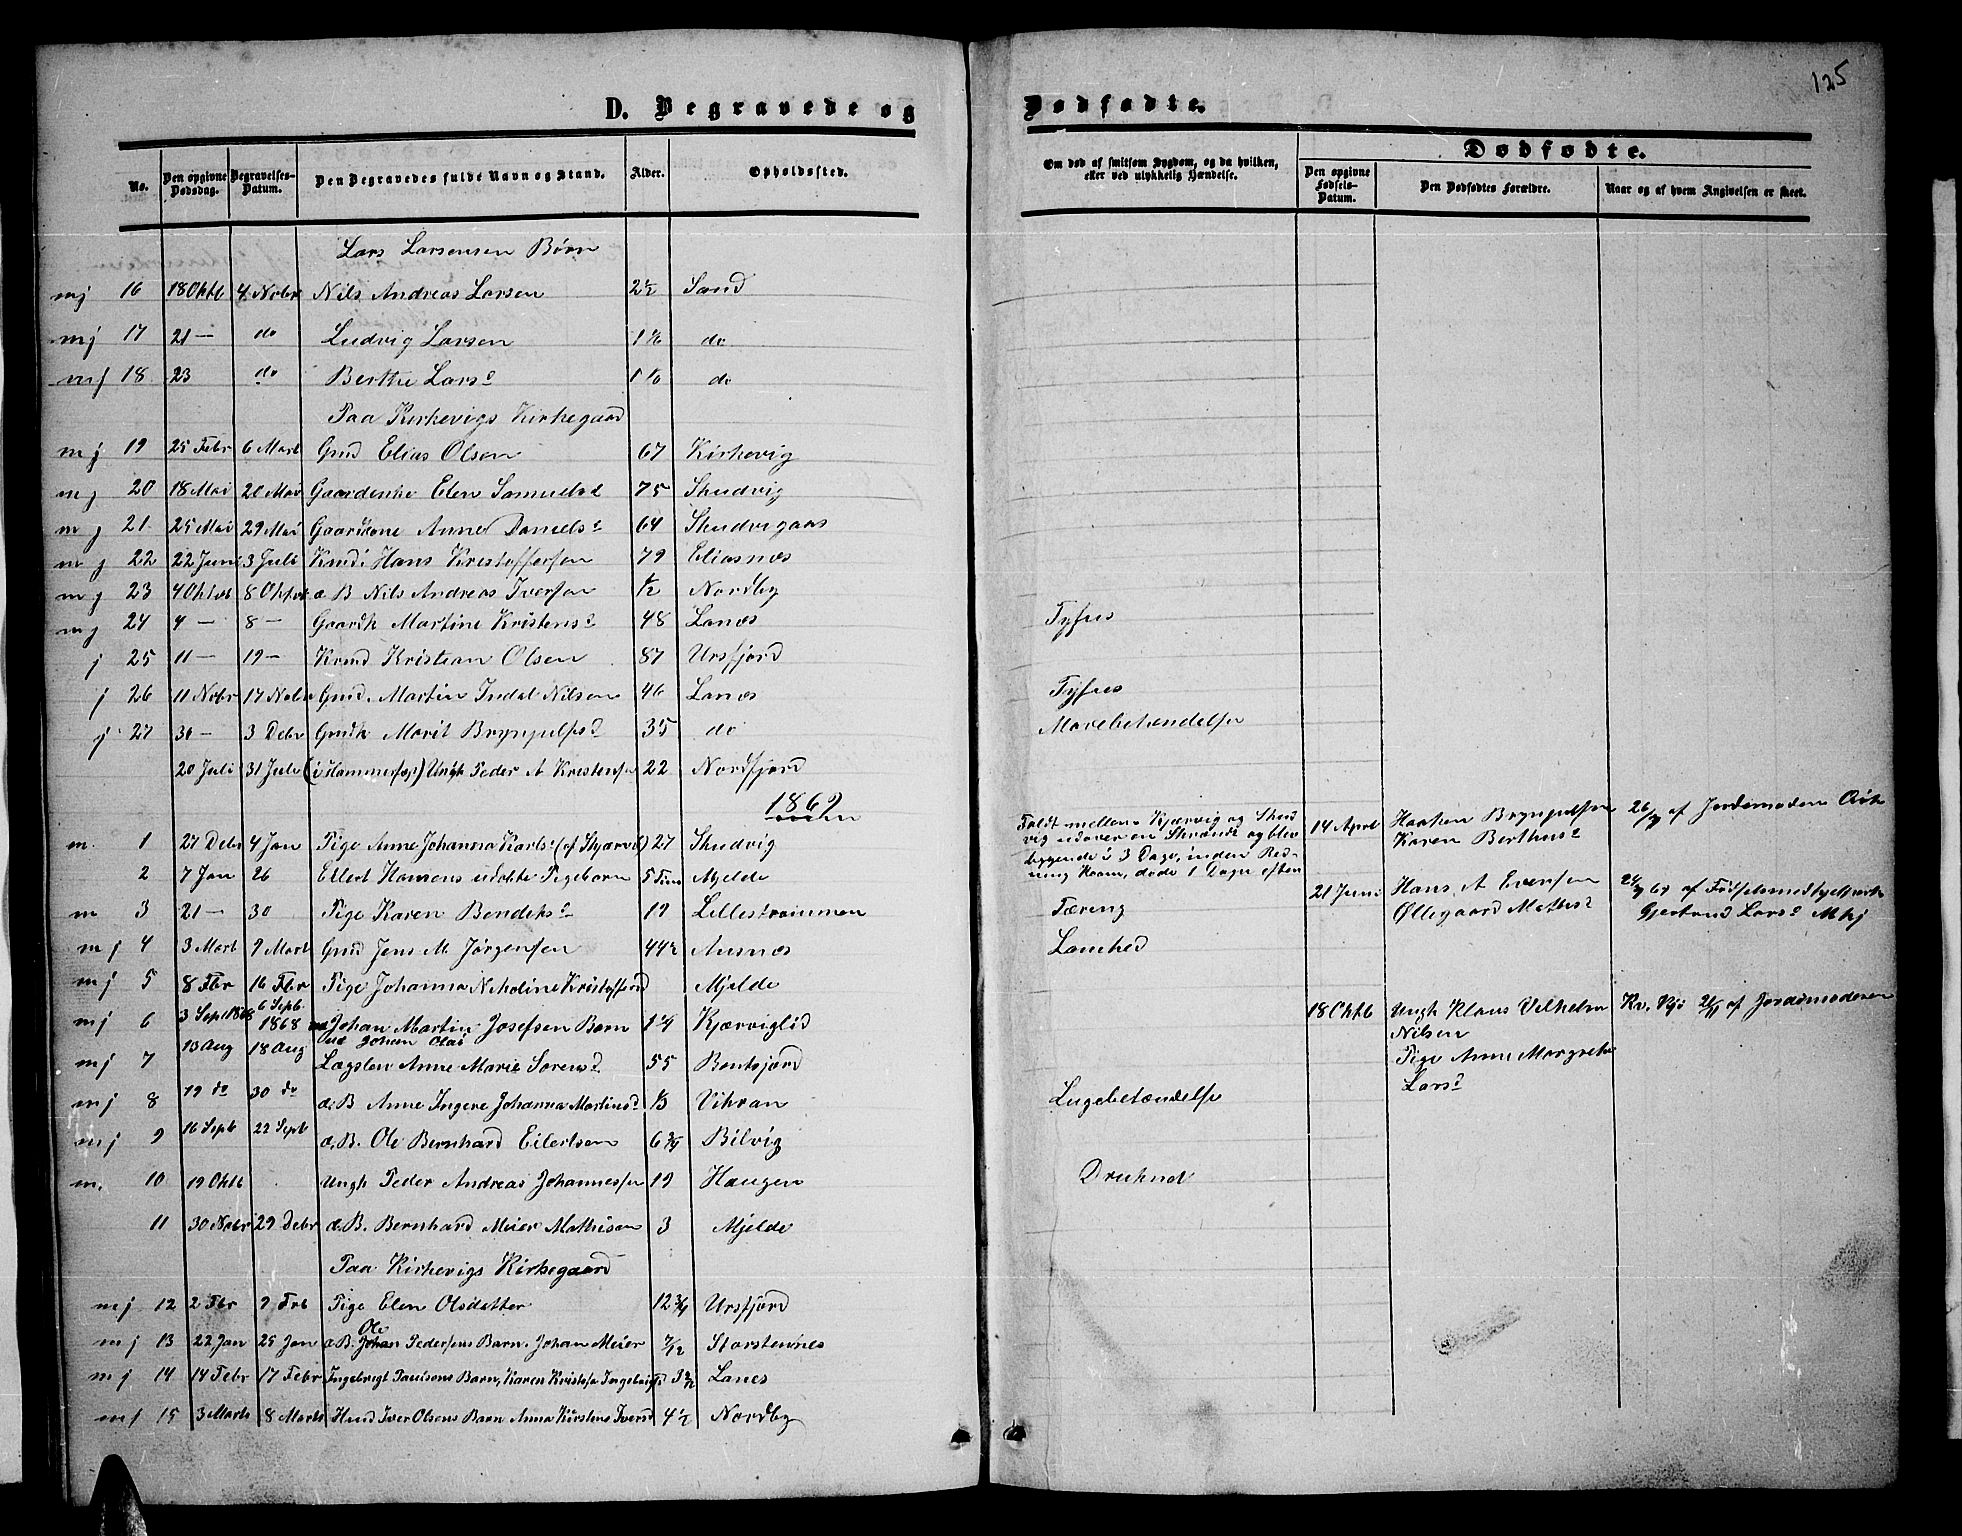 125
D. Begravede og Dødfødte.
No. Den opgivne Dødsdag. Begravelses-Datum. Den Begravedes fulde Navn og Stand. Alder. Opholdssted.
Om død af smitsom Sygdom, og da hvilken, eller ved ulykkelig Hændelse.
Dødfødte.
Den opgivne Fødsels-Datum. Den Dødfødtes Forældre. Naar og af hvem Angivelsen er skeet.
Lars Larsensen Børn
mj 16 18 Oktb 4 Nobr Nils Andreas Larsen 2½ Sand
mj 17 21 — do Ludvig Larsen do
mj 18 23 do Berthe Larsd do
Paa Kirkevigs Kirkegaard
mj 19 25 Febr 6 Mart Gmd Elias Olsen 67 Kirkevig
mj 20 18 Mai 20 Mai Gaardenke Elen Samuelsd 75 Skudvig
mj 21 25 Mai 29 Mai Gaardkone Anne Danielsd 64 Skudvigaas
mj 22 22 Juni 3 Juli Hans Kristoffersen 79 Eliasnæs
mj 23 4 Oktob 8 Oktob d B Nils Andreas Iversen ½ Nordby
mj 24 4 — 8 — Gaardk Martine Kristensd 48 Lanæs Tyfus
j 25 11 — 19 — Kmd Kristian Olsen 87 Ursfjord
j 26 11 Nobr 17 Nobr Gmd. Martin Indal Nilsen 46 Lanæs Tyfus
j 27 30 — 3 Debr Gmdk Marit Brynjulfsd 35 do Mavebetændelse
20 Juli 31 Juli (i Hammerfest) Ungk Peder A Kristensen 22 Nordfjord
1869
m. 1 27 Debr 4 Jan Pige Anne Johanna Karlsd 27 Skudvig
Faldt mellem Kjærvig og Skudvig udover en Skrænt og blev liggende i 3 Dage, inden Redning kom, døde 1 Dage efter
14 April Haaken Brynjulfsen Karen Berthusd
26/7 af Jordemoderen
2 7 Jan 26 Eilert Hansens udøbte Pigebarn Mjelde
21 Juni Hans A Eversen Øllegaard Mathisd
24/7 69 af Fødselsmedhjelpersk Gjertrud Larsd Mkj
m 3 21 — 30 Pige Karen Bendiksd 19 Lillestrømmen Tæring
mj 4 3 Mart 9 Mart Gmd Jens M. Jørgensen 44½ Ausnæs Lamhed
mj 5 8 Fbr 16 Fbr Pige Johanna Nikoline Kristoffersd Mjelde
mj 6 3 Sept 1868 6 Sept 1868 Johan Martin Josefsen Barn Johan Olai 1¼ Kjærviglid
18 Oktb Ungk Klaus Vilhelm Nilsen Pige Anne Margrethe Larsd
af Jordemoderen
mj 7 13 Aug 18 Aug Lægslen Anne Marie Sørensd 55 Bentsjord
mj 8 19 do 30 do d. B Anne Ingere Johanna Martinsd ⅓ Vikran Lugebetændelse
mj 9 16 Sept 22 Sept d. B. Ole Bernhard Eilertsen 6¾ Bilvig
m. 10 19 Oktb Ungk Peder Andreas Johannessen 19 Haugen Druknet
11 30 Nobr 29 Debr d. B. Bernhard Meier Mathisen 3 Mjelde
Paa Kirkevigs Kirkegaard
mj 12 2 Fbr 9 Frb Pige Elen Olsdatter 12¾ Ursfjord
mj 13 22 Jan 25 Jan d. B. Ole Johan Pedersens Barn. Johan Meier 7/12 Storstennes
mj 14 14 Febr 17 Febr Ingebrigt Paulsons Barn, Karen Kristofa Lanes
mj 15 3 Marts 8 Marts Husd Iver Olsens Barn Anna Kirstens Iversd 4½ Nordby